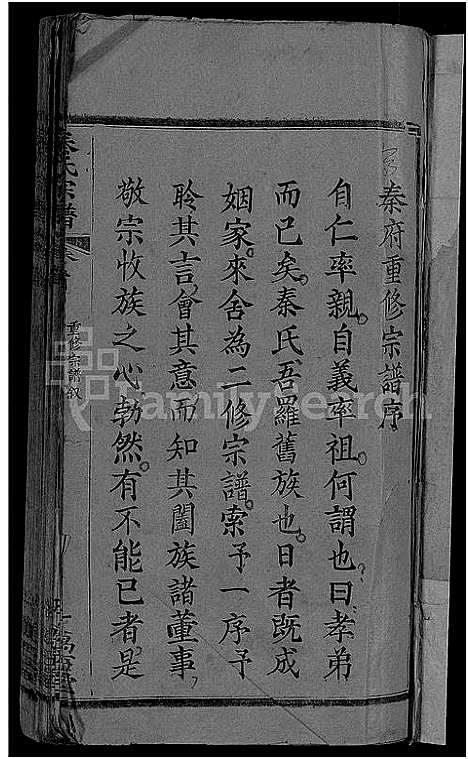 秦府重修宗譜序
自仁率親。自義率祖。何謂也。曰孝弟
而已矣。秦氏吾羅舊族也。日者既成
姻家。來舍為二修宗譜。索予一序。予
聆其言。會其意。而知其闔族諸董事，
敬宗收族之心勃然。有不能已者。是
重修宗譜叙
氏宗譜
FamilySearch